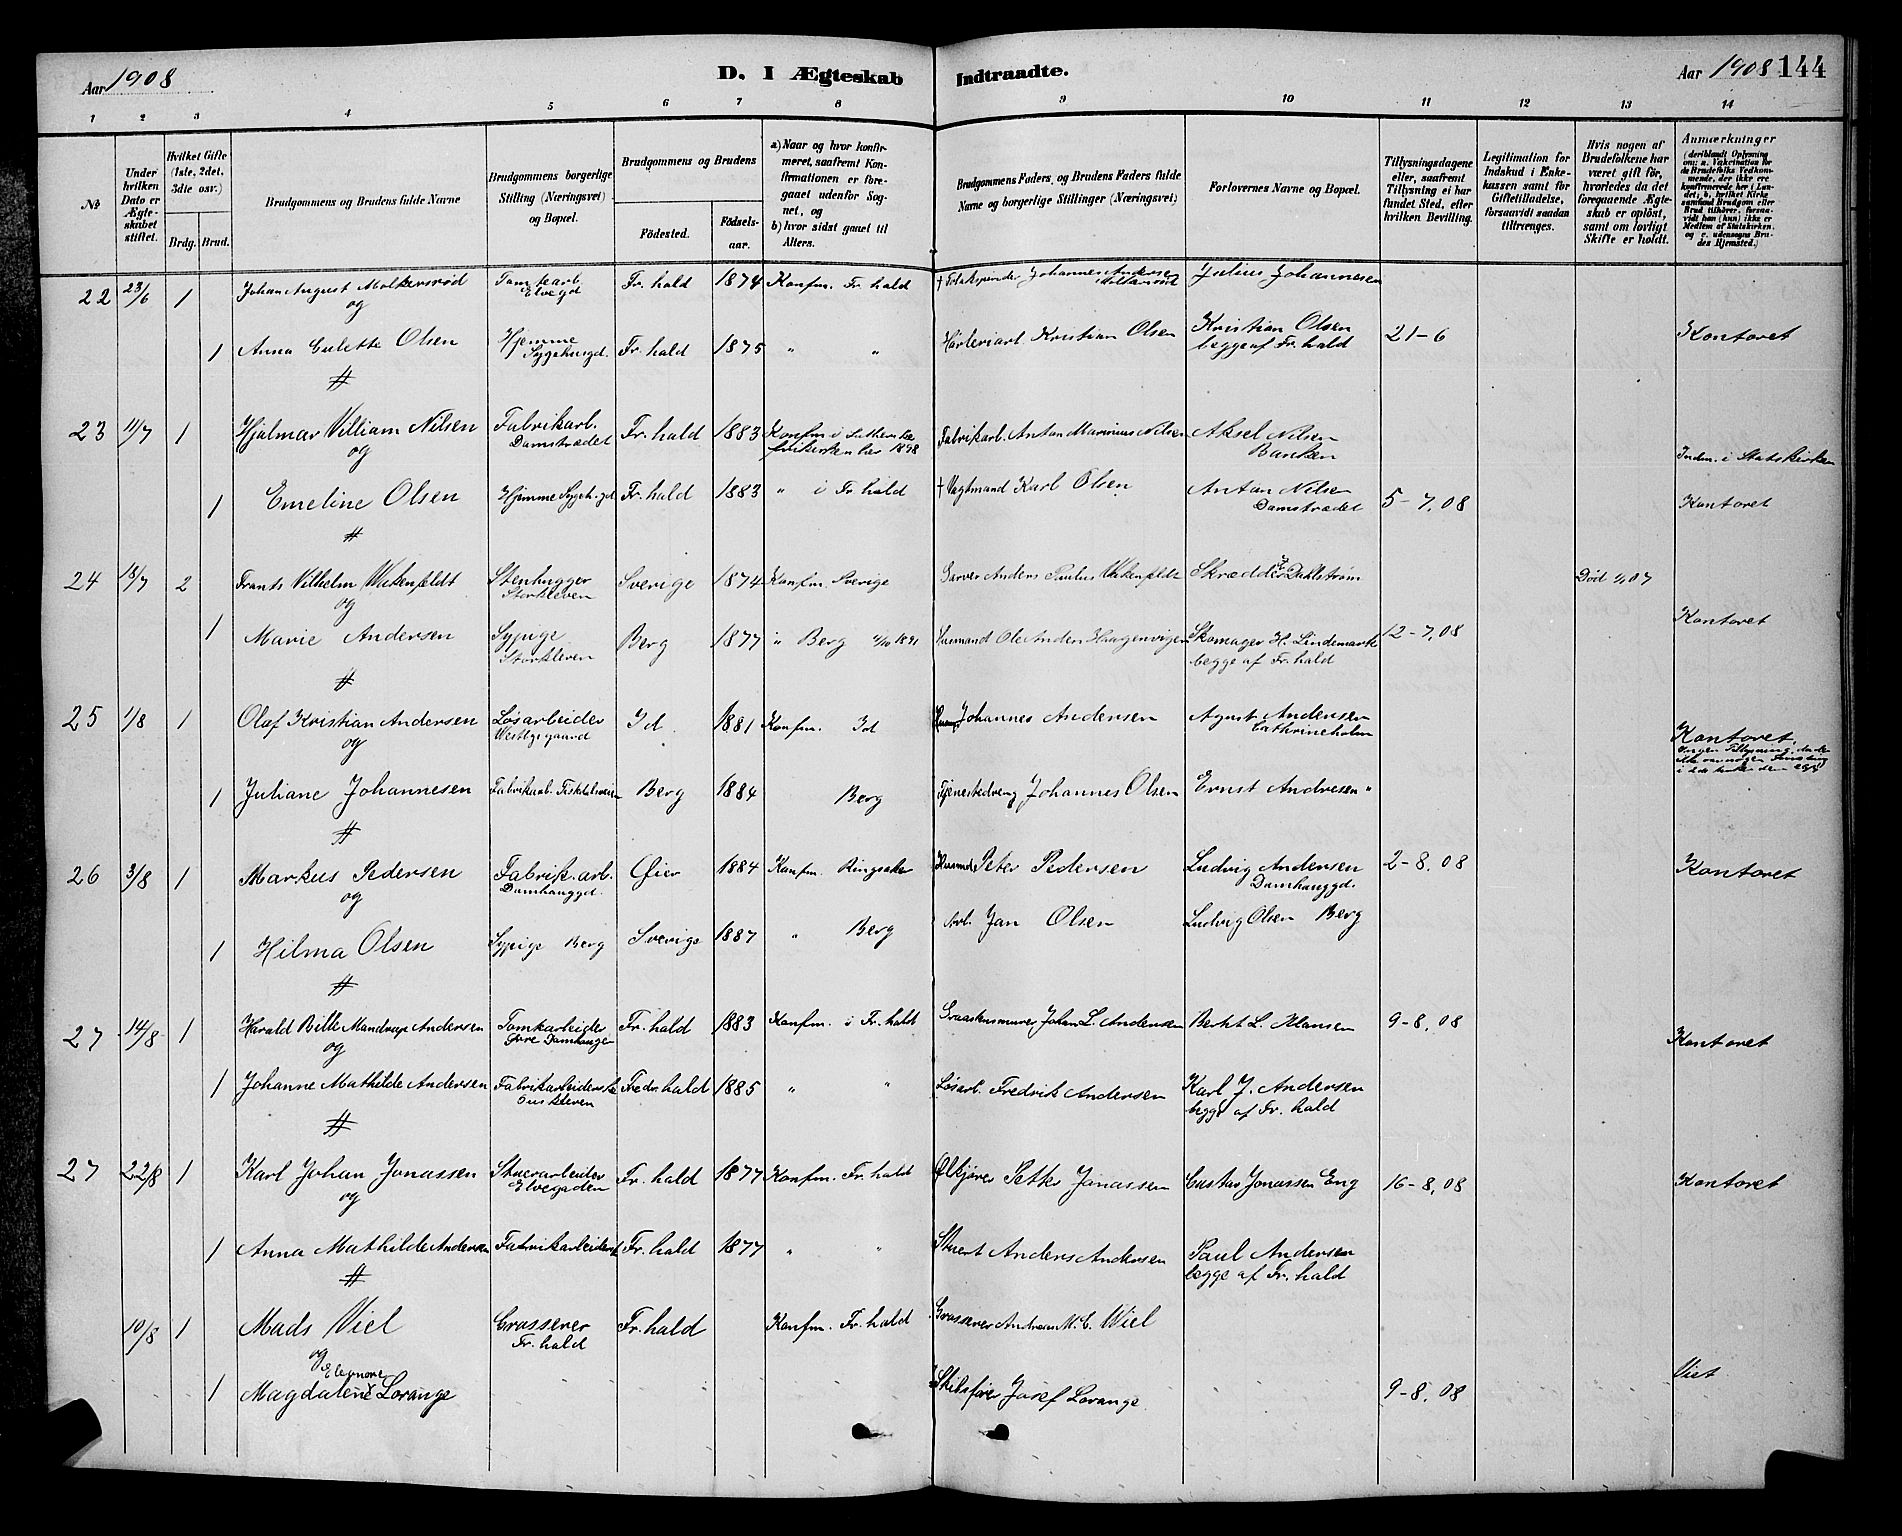 Aar 1908
D. I Ægteskab Indtraadte.
Aar 1908 144
1 2 3 4 5 6 7 8 9 10 11 12 13 14
No
Under hvilken Dato er Ægteskabet stiftet.
Hvilket Gifte (1ste, 2det, 3die osv.)
Brdg. Brud.
Brudgommens og Brudens fulde Navne
Brudgommens borgerlige Stilling (Næringsvei) og Bopæl.
Brudgommens og Brudens
Fødested. Fødselsaar.
a) Naar og hvor konfirmeret, saafremt Konfirmationen er foregaaet udenfor Sognet, og
b) hvor sidst gaaet til Alters.
Brudgommens Faders, og Brudens Faders fulde Navne og borgerlige Stillinger (Næringsvei)
Forlovernes Navne og Bopæl.
Tillysningsdagene eller, saafremt Tillysning ei har fundet Sted, efter hvilken Bevilling.
Legitimation for Indskud i Enkekassen samt for Giftetilladelse, forsaavidt saadan tiltrænges.
Hvis nogen af Brudefolkene har været gift før, hvorledes da det foregaaende Ægteskab er opløst, samt om lovligt Skifte er holdt.
Anmærkninger
(deriblandt Oplysning om: a. Vakcination for de Brudefolks Vedkommende, der ikke ere konfirmerede her i Landet; b. hvilket Kirkesamfund Brudgom eller Brud tilhører, forsaavidt han (hun) ikke er Medlem af Statskirken, og c. udensogns Brudes Hjemsted.)
22 23/6 1 Johan August Molkersrød Tomtearb. Elvegd Fr. hald 1874 Konfm. Fr. hald † Johannes Andersen Julius Johannesen
og
1 Anna Gulette Olsen Hjemme Sygehusgd. Fr. hald 1875 " " Kristian Olsen Kristian Olsen begge af Fr. hald 21-6 Kontoret
#
23 11/7 1 Hjalmar Villiam Nilsen Fabrikarb. Damstrædet Fr. hald 1883 Konfm i Lutherske frikirken her 1898 Fabrikarb. Anton Marinius Nilsen Aksel Nilsen Banken
og
Indm. i Statskirken
1 Emeline Olsen Hjemme Sygeh.gd Fr. hald 1883 " i Fr. hald † Vagtmand Karl Olsen Anton Nilsen Damstrædet 5-7, 08 Kontoret
#
24 18/7 2 Frants Vilhelm Wakenfeldt Stenhugger Storkleven Sverige 1874 Konfm. Sverige Garver Anders Paulus Wakenfeldt Skrædder Dahlstrøm Død 07
og
1 Marie Andersen Sypige Storkleven Berg 1877 " Berg 1891 Husmand Ole Anders Haagenvigen Skomager H. Lindemark begge af Fr. hald 12-7, 08 Kontoret
#
25 1/8 1 Olaf Kristian Andersen Løsarbeider Westgaard Id 1881 Konfm. Id Johannes Andersen Agust Andersen Cathrineholm
og
Kontoret,
1 Juliane Johannesen Fabrikarb. Berg 1884 Berg Tjenestedreng Johannes Olsen Ernst Andresen "
#
26 3/8 1 Markus Pedersen Fabrik.arb. Damhauggd. Øier 1884 Konfm. Ringsaker Husmd Peter Pedersen Ludvig Andersen Damhauggd. 2-8, 08 Kontoret
og
1 Hilma Olsen Sypige Berg Sverige 1887 " Berg Arb. Jan Olsen Ludvig Olsen Berg
#
27 14/8 1 Harald Bille Mandrup Andersen Tomtearbeider Øvre Damhaugen Fr. hald 1883 Konfm. i Fr. hald Graastensmurer Johan L. Andersen Berht L. Klausen 9-8, 08 Kontoret
og
1 Johanne Mathilde Andersen Fabrikarbeiderske Fredr.hald 1885 " " Løsarb. Fredrik Andersen Karl J. Andersen begge af Fr. hald
#
27 22/8 1 Karl Johan Jonassen Stuerarbeider Elvegaden Fr. hald 1877 Konfm. Fr. hald Ølkjører Petter Jonassen Gustav Jonassen Eng 16-8, 08 Kontoret
og
1 Anna Mathilde Andersen Fabrikarbeidersk Fr. hald 1877 " " Stuert Anders Andersen Paul Andersen begge af Fr. hald
#
10/8 1 Mads Wiel Grosserer Fr. hald Fr. hald Konfm. Fr. hald Grosserer Andreas M. C. Wiel
og
Eleonore
1 Magdalene Lorange Skibsfører Josef Lorange 9-8, 08 Viet